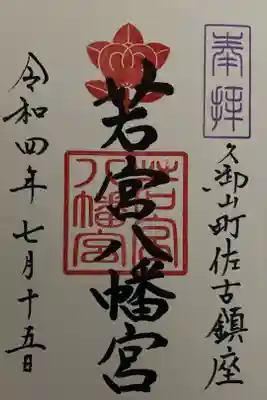 奉拝
久御山町佐古鎮座
若宮八幡宮
若宮
八幡宮
令和四年七月十五日